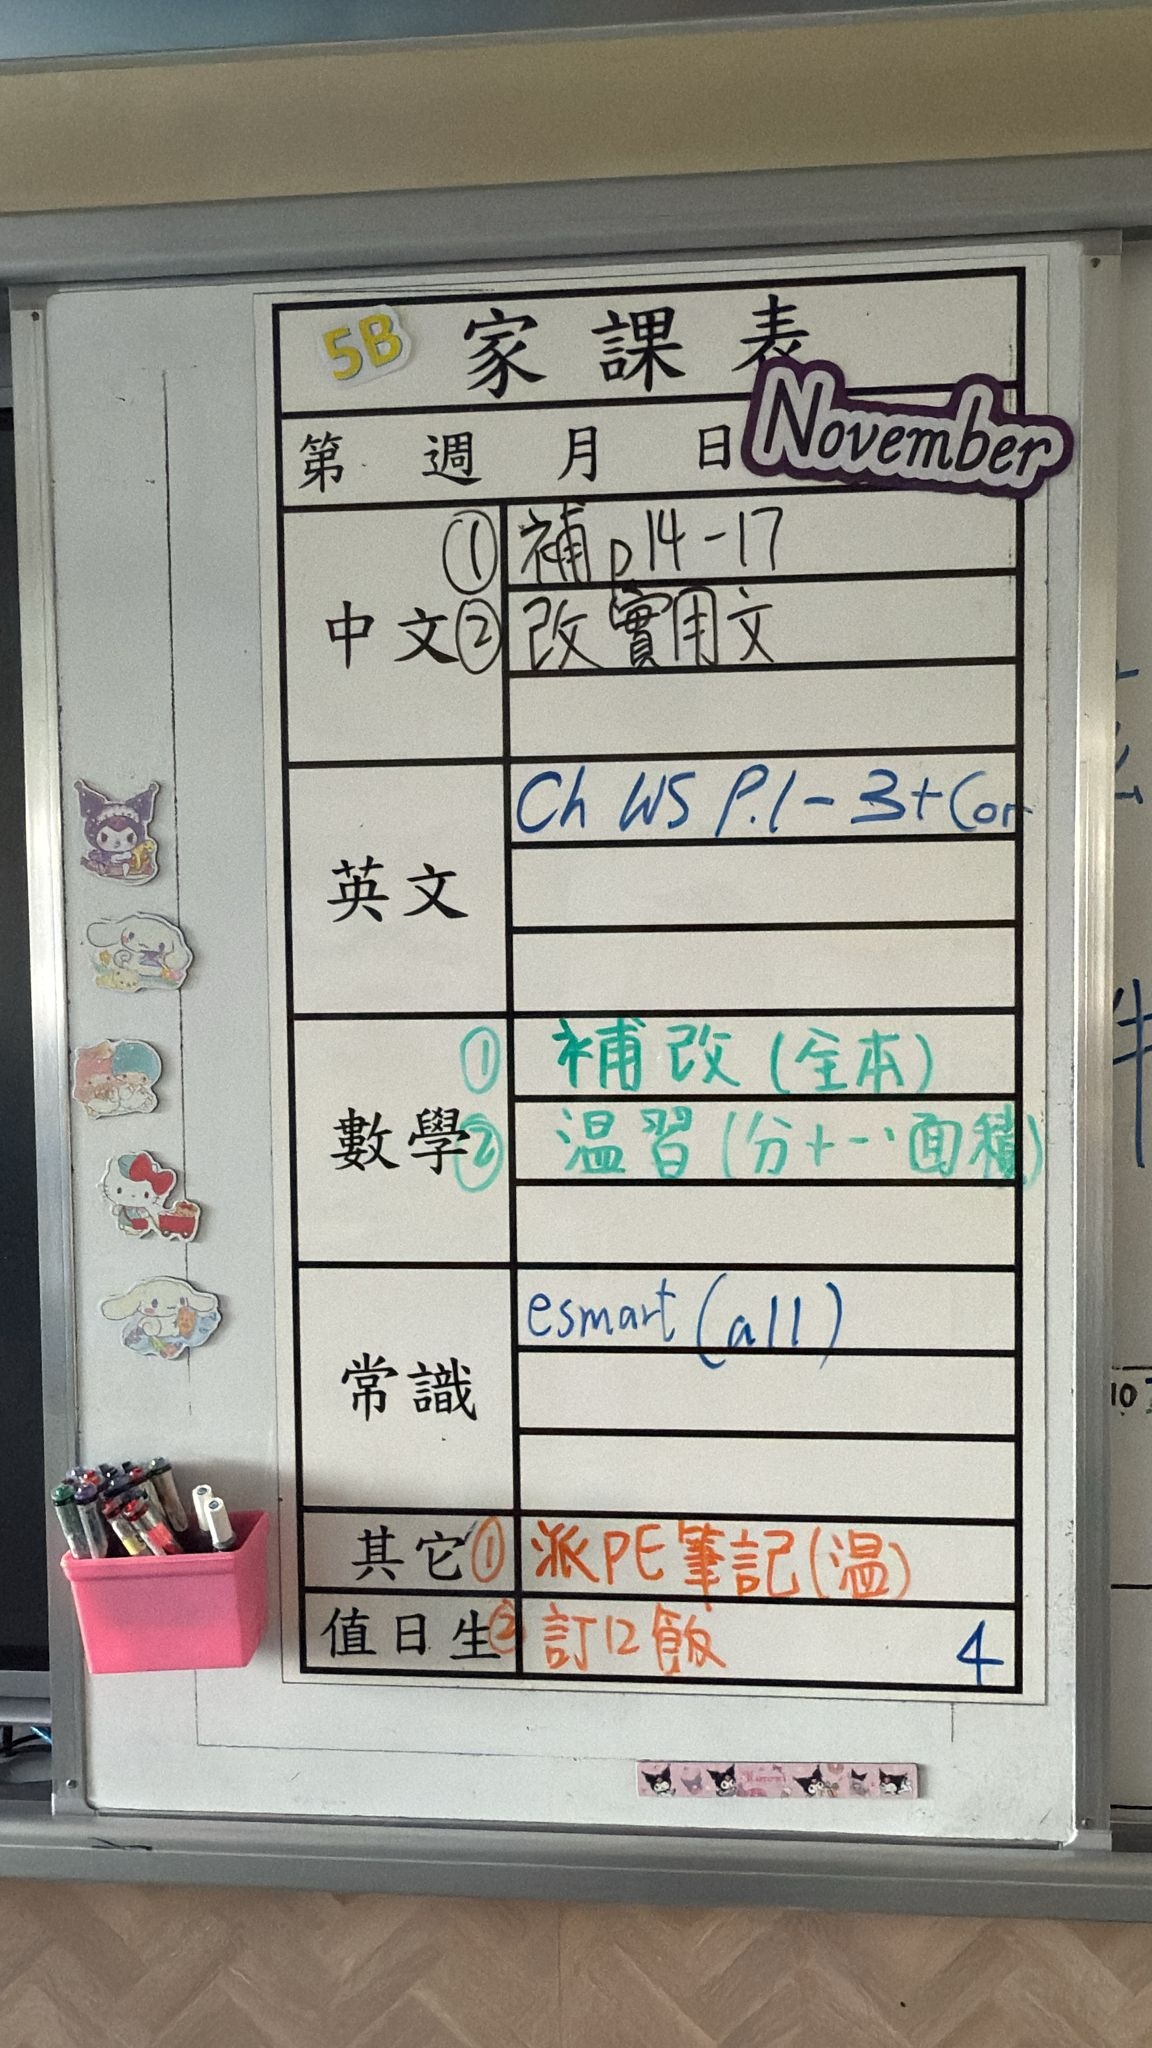 5B 家課表
November
第 週 月 日
中文
① 補 p14-17
② 改實用文
英文
Ch WS P.1-3+Cor
數學
① 補改(全本)
② 温習(分+-、面積)
常識
esmart (all)
其它
① 派PE筆記(温)
值日生
② 訂12飯
4
10